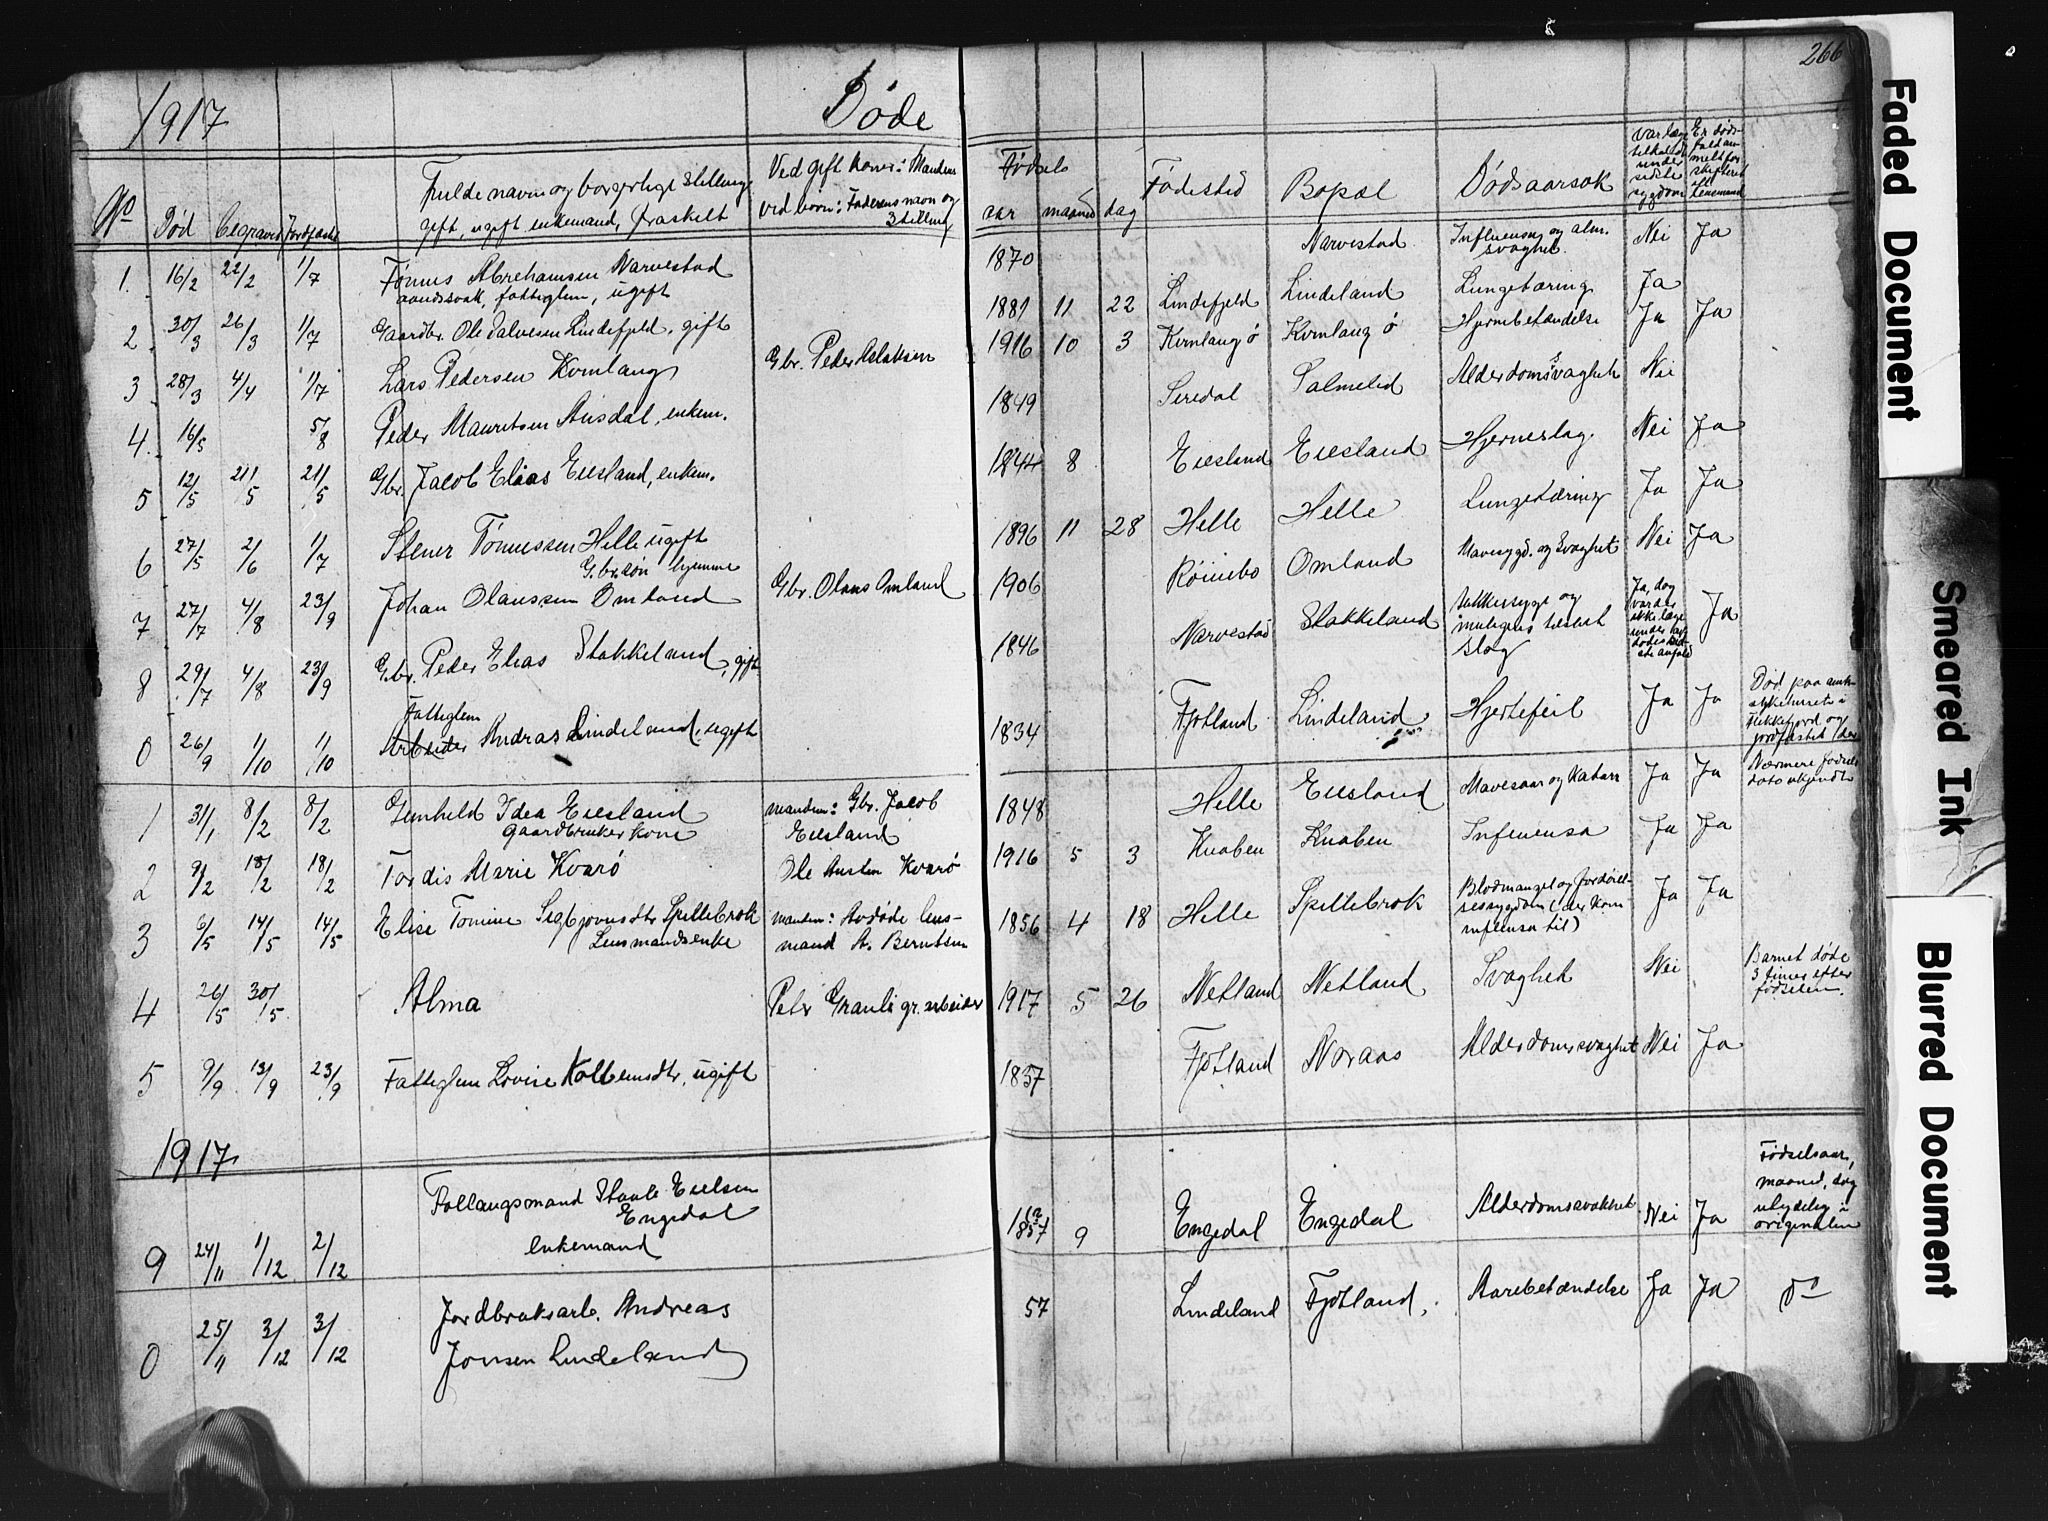 266
1917 Døde
No Død begravet Jordfæstet Fulde navn og borgerlige stilling, Ved gift kone: Mandens Fødsels Fødested Bopæl Dødsaarsak
gift, ugift enkemand, fraskilt ved born: Faderens navn og stilling aar maaned dag
Var læge tilkaldt under sidste sygdom
Er døds-
fald an-
meldt for
skifteret
ell.
lensmand
1. 16/2 22/2 1/7 Tønnes Abrehamsen Narvestad 1870 Narvestad Influensa og alm. svaghet. Nei Ja
aandssvak, fattiglem, ugift
2 30/3 26/3 1/7 Gaardbr. Ole Salvesen Lindefjeld, gift 1881 11 22 Lindefjeld Lindeland Lungetæring Ja
3 28/3 4/4 1/7 Lars Pedersen Kvinlaug Gbr. Peder Aslaksen 1916 10 3 Kvinlaug ø Kvinlaug ø Hjernebetændelse Ja Ja
4 16/5 5/8 Peder Mauritsen Ausdal, enkem. 1849 Siredal Salmelid Alderdomssvaghet Nei
5 12/5 21/5 21/5 Gbr. Jacob Elias Eiesland, enkem. 1844 8 Eiesland Eiesland Hjerneslag. Nei Ja
6 27/5 2/6 1/7 Stener Tønnessen Helle ugift 1896 11 28 Helle Helle Lungetæring Ja Ja
Gbr.søn hjemme
7 27/7 4/8 23/9 Johan Olaussen Omland Gbr. Olaus Omland 1906 Røinebo Omland Mavesygd. og Svaghet Nei Ja
8 29/7 4/8 23/9 Gbr. Peder Elias Stakkeland, gift 1846 Narvestad Stakkeland Sukkersyge og muligens tilstøt slag Ja, dog var der ikke læge under Ja
Fattiglem
0 26/9 1/10 1/10 Arbeider Andras Lindeland, ugift 1834 Fjotland Lindeland Hjertefeil Ja Ja Død paa amts-
sykehuset i
Flekkefjord og
jordfæstet der
1 31/1 8/2 8/2 Gunhild Idea Eiesland manden: Gbr. Jacob 1848 Helle Eiesland Mavesaar og Katarr Ja Ja Nærmere fødsels
dato ukjendt
Gaardbrukerkone Eiesland
2 9/2 18/2 18/2 Tordis Marie Kvarø Ole Austen Kvarø 1916 5 3 Knaben Knaben Influensa Ja Ja
3 6/5 14/5 14/5 Elise Tomine Sigbjørnsdtr Spillebrok manden: Avdøde lens- 1856 4 18 Helle Spillebrok Blodmangel og fordøiel-
sessygdom (der kom
influensa til) Ja Ja
Lensmandsenke mand A. Berntsen
4 26/5 30/5 Alma Peter Granli gr. arbeider 1917 5 26 Netland Netland Svaghet Nei Barnet døde
3 timer efter
fødselen.
5 9/9 13/9 23/9 Fattiglem Lovise Kolbensdtr, ugift 1837 Fjotland Naraas Alderdomssvaghet Nei Ja
1917
9 24/11 1/12 2/12 Follaugsmand Staale Eielsen 9 Engedal Engedal Alderdomssvakhet Nei Ja Fødselsaar,
maaned, dag
utydelig i
originalen
Engedal
enkemand
0 25/11 3/12 3/12 Jordbruksarb. Andreas 57 Lindeland Fjotland, Aarebetændelse Ja Ja do
Jonsen Lindeland
Faded Document
Smeared Ink
Blurred Document